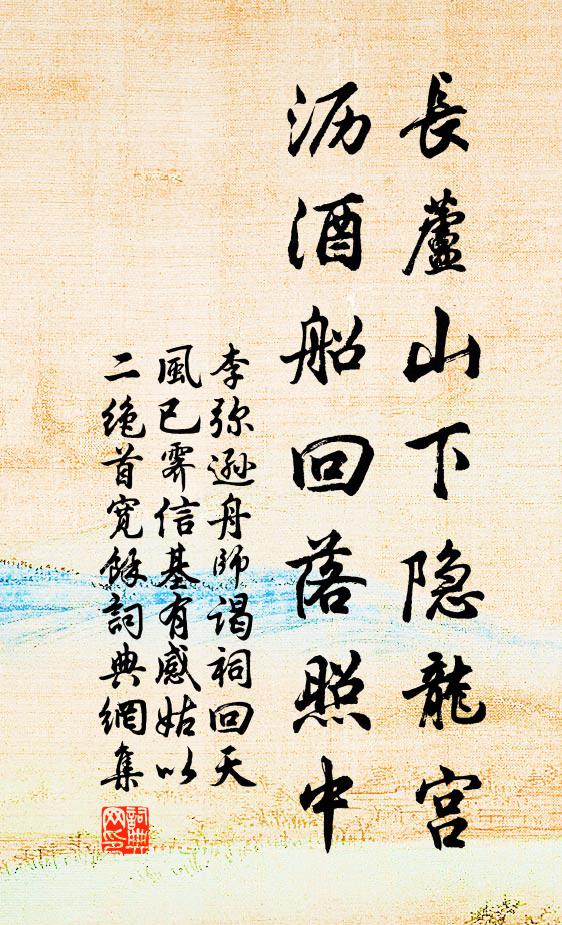 長蘆山下隐龍宫
沥酒船回落照中
李弥遜舟師谒祠回天
風已霁信基有感姑以
二绝首寛餘詞典網集
詞典
网印